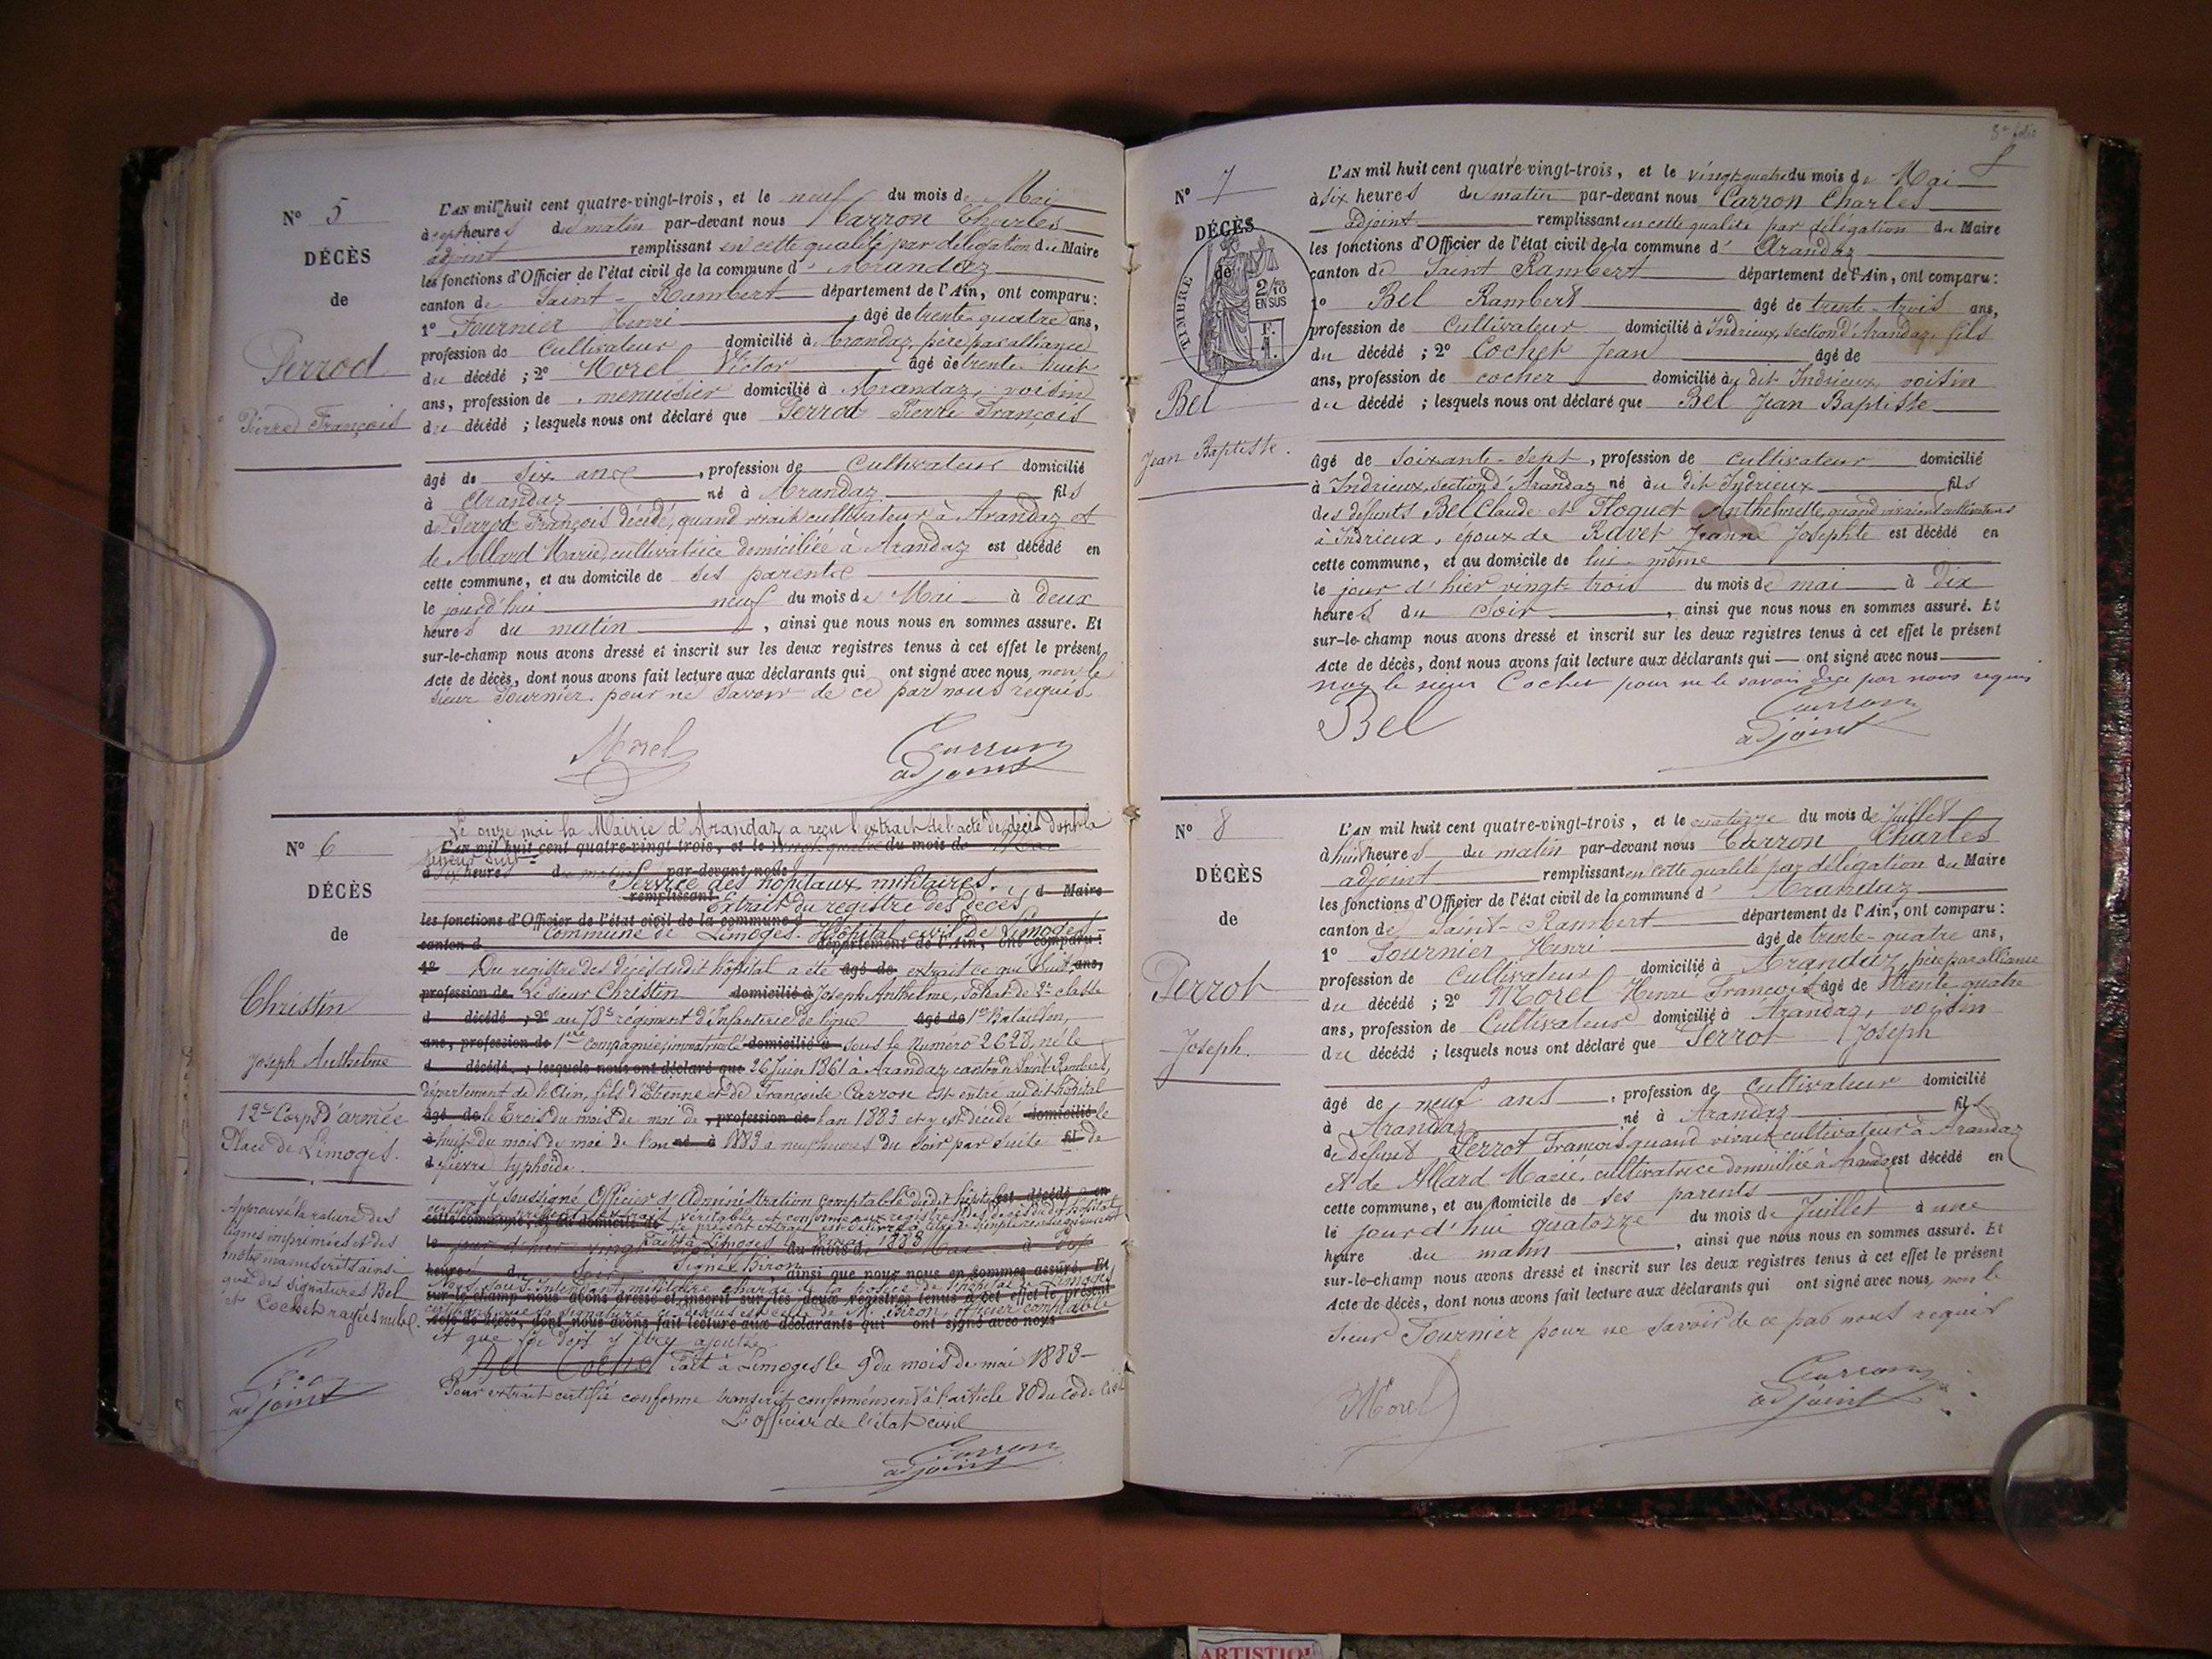 N° 5
DÉCÈS
de
Perrod
Pierre François
L'AN mil huit cent quatre-vingt-trois, et le neuf du mois de Mai
à sept heures du matin par-devant nous Carron Charles
adjoint remplissant en cette qualité par délégation du Maire
les fonctions d'Officier de l'état civil de la commune d' Arandaz
canton de Saint-Rambert département de l'Ain, ont comparu:
1° Fournier Henri âgé de trente-quatre ans,
profession de Cultivateur domicilié à Arandaz, père par alliance
du décédé ; 2° Morel Victor âgé de trente huit
ans, profession de menuisier domicilié à Arandaz, voisin
du décédé ; lesquels nous ont déclaré que Perrod Pierre François
âgé de six ans, profession de Cultivateur domicilié
à Arandaz né à Arandaz fils
de Perrod François décédé, quand vivait cultivateur à Arandaz et
de Allard Marie, cultivatrice domiciliée à Arandaz est décédé en
cette commune, et au domicile de ses parents
le jourd'hui neuf du mois de Mai à deux
heures du matin, ainsi que nous nous en sommes assuré. Et
sur-le-champ nous avons dressé et inscrit sur les deux registres tenus à cet effet le présent
Acte de décès, dont nous avons fait lecture aux déclarants qui ont signé avec nous, non le
sieur Fournier pour ne savoir de ce par nous requis
Morel
Carron
adjoint
N° 6
DÉCÈS
de
Christin
Joseph Anthelme
12e Corps d'armée
Place de Limoges.
Approuvé la rature des
lignes imprimées et des
mots manuscrits ainsi
que des signatures Bel
et Cochet rayés nuls.
Carron
adjoint
Le onze mai la Mairie d'Arandaz a reçu l'extrait de l'acte de décès dont la
teneur suit
L'AN mil huit cent quatre-vingt-trois, et le vingt-quatre du mois de Mai
à six heures du matin par-devant nous
Service des hôpitaux militaires.
remplissant d Maire
Extrait du registre des décès
les fonctions d'Officier de l'état civil de la commune d
Commune de Limoges. Hôpital civil de Limoges
canton d département de l'Ain, ont comparu:
1° Du registre des décès dudit hôpital a été âgé de extrait ce qui suit ans,
profession de Le sieur Christin domicilié à Joseph Anthelme, soldat de 2e classe
d décédé ; 2° au 78e régiment d'Infanterie de ligne âgé de 1er Bataillon,
ans, profession de 1ère Compagnie, immatriculé domicilié à sous le numéro 2628, né le
d décédé ; lesquels nous ont déclaré que 26 Juin 1861 à Arandaz canton de Saint-Rambert,
département de l'Ain, fils d'Etienne et de Françoise Carron est entré audit hôpital
âgé de le Trois du mois de mai de, profession de l'an 1883 et y est décédé domicilié le
à huit du mois de mai de l'an né à 1883 à neuf heures du soir par suite fil de
d fièvre typhoïde.
Je soussigné Officier d'Administration comptable dudit hôpital est décédé en
cette commune, et au domicile de
Fait à Limoges le 9 mai 1883
le jour d'hier vingt trois du mois de Mai à Dix
Signé Biron
heures du Soir, ainsi que nous nous en sommes assuré. Et
Nous sous-Intendant militaire chargé de la police de l'hôpital de Limoges
sur-le-champ nous avons dressé et inscrit sur les deux registres tenus à cet effet le présent
certifions que la signature ci-dessus est celle de M. Biron, officier comptable
Acte de décès, dont nous avons fait lecture aux déclarants qui ont signé avec nous
et que foi doit y être ajoutée
Bel Cochet Fait à Limoges le 9 du mois de mai 1883
Pour extrait certifié conforme transcrit conformément à l'article 80 du Code Civil
L'officier de l'état civil
Carron
adjoint
8e folio
N° 7
DÉCÈS
de
TIMBRE
2/10
EN SUS
Bel
Jean Baptiste.
L'AN mil huit cent quatre-vingt-trois, et le vingt-quatre du mois de Mai
à six heures du matin par-devant nous Carron Charles
adjoint remplissant en cette qualité par délégation du Maire
les fonctions d'Officier de l'état civil de la commune d' Arandaz
canton de Saint Rambert département de l'Ain, ont comparu:
1° Bel Rambert âgé de trente-trois ans,
profession de Cultivateur domicilié à Indrieux, section d'Arandaz, fils
du décédé ; 2° Cochet Jean âgé de
ans, profession de cocher domicilié à dit Indrieux, voisin
du décédé ; lesquels nous ont déclaré que Bel Jean Baptiste
âgé de Soixante-sept, profession de cultivateur domicilié
à Indrieux, section d'Arandaz né au dit Indrieux fils
des défunts Bel Claude et Floquet Anthelmette, quand vivaient cultivateurs
à Indrieux, époux de Ravet Jeanne Josephte est décédé en
cette commune, et au domicile de lui-même
le jour d'hier vingt-trois du mois de mai à Dix
heures du Soir, ainsi que nous nous en sommes assuré. Et
sur-le-champ nous avons dressé et inscrit sur les deux registres tenus à cet effet le présent
Acte de décès, dont nous avons fait lecture aux déclarants qui — ont signé avec nous
non le sieur Cochet pour ne le savoir de ce par nous requis
Bel
Carron
adjoint
N° 8
DÉCÈS
de
Perrot
Joseph.
L'AN mil huit cent quatre-vingt-trois, et le quatorze du mois de Juillet
à huit heures du matin par-devant nous Carron Charles
adjoint remplissant en cette qualité par délégation du Maire
les fonctions d'Officier de l'état civil de la commune d' Arandaz
canton de Saint-Rambert département de l'Ain, ont comparu:
1° Fournier Henri âgé de trente-quatre ans,
profession de Cultivateur domicilié à Arandaz, père par alliance
du décédé ; 2° Morel Henri François âgé de trente quatre
ans, profession de Cultivateur domicilié à Arandaz, voisin
du décédé ; lesquels nous ont déclaré que Perrot Joseph
âgé de neuf ans, profession de Cultivateur domicilié
à Arandaz né à Arandaz fils
de défunt Perrot François quand vivait cultivateur à Arandaz
et de Allard Marie, cultivatrice domiciliée à Arandaz est décédé en
cette commune, et au domicile de ses parents
le jourd'hui quatorze du mois de Juillet à une
heure du matin, ainsi que nous nous en sommes assuré. Et
sur-le-champ nous avons dressé et inscrit sur les deux registres tenus à cet effet le présent
Acte de décès, dont nous avons fait lecture aux déclarants qui ont signé avec nous, non le
sieur Fournier pour ne savoir de ce par nous requis
Morel
Carron
adjoint
ARTISTIQ